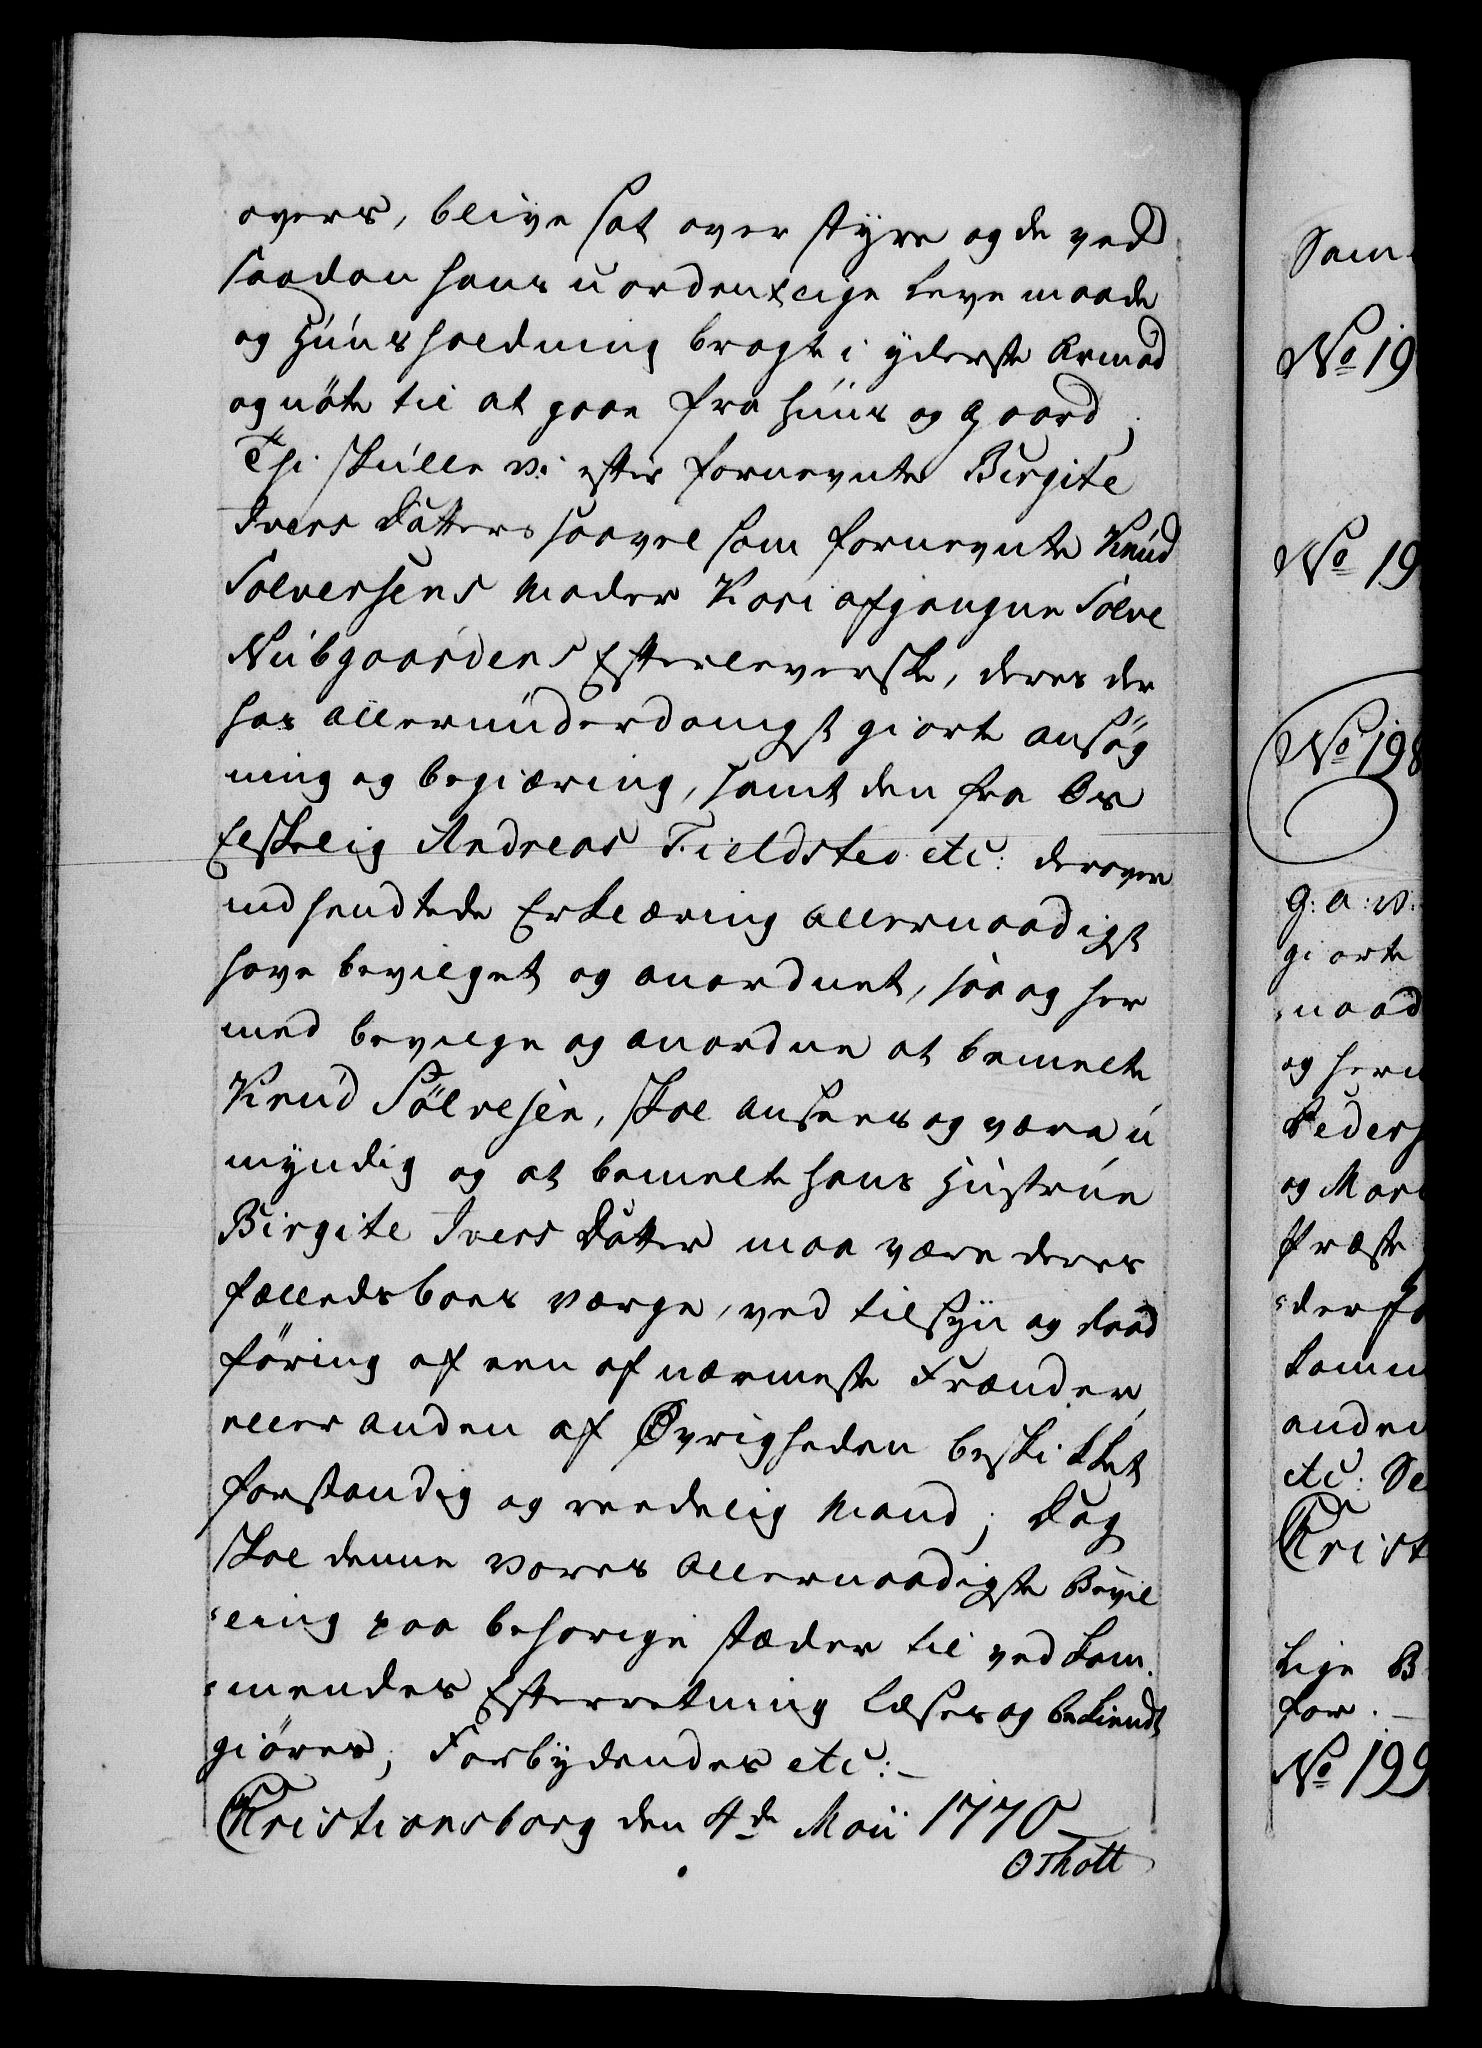 overs, blive sat over styre og de ved
saadan hans uordentlige Leve maade
og Huusholdning bragt i yderste Armod
og nöte til at gaae fra Huus og Gaard;
Thi skulle vi efter fornevnte Birgite
Ivers Datters saavel som fornevnte Knud
Solversens Moder Kari afgangne Solve
Nubgaardens Efterleverske, deres der
hos allerunderdanigst giorte ansög
ning og begiæring, samt den fra Os
Elskelig Andreas Fieldsted etc: derover
indsendtede Erklæring allernaadigst
have bevilget og anordnet, saa og her
med bevilge og anordne at bemelte
Knud Sölvesen, skal ansees og være u
myndig og at bemelte hans Hustrue
Birgite Ivers Datter maa være deres
fælledsboes Værge, ved tilsyn og Raad
föring af een af nærmeste Frænder,
eller anden af Øvrigheden beskikket
forstandig og reedelig Mand; Dog
skal denne vores allernaadigste Bevil
ling paa behorige stæder til ved kom
mendes Efterretning læses og bekiendt
giöres; Forbydendes etc:
Christiansborg den 4de Maii 1770
O Thott
Sam
No 19
No 19
No 198
G: A: V:
giorte
naad
og herm
Peders
og Mar
Præste
Komm
anden
etc: Se
Christ
Lige B
for.
No 199